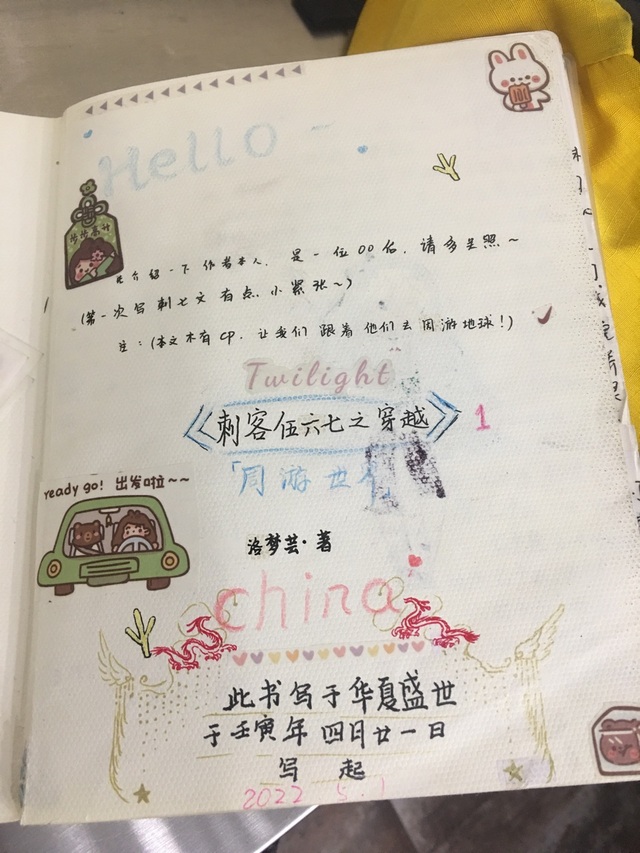 Hello~
先介绍一下作者本人，是一位00后，请多关照~
(第一次写刺七文有点小紧张~)
注：(本文木有CP，让我们跟着他们去周游地球！)
Twilight
《刺客伍六七之穿越》1
「周游世界」
ready go! 出发啦~~
洛梦芸·著
china
此书写于华夏盛世
于壬寅年四月廿一日
写起
2022 5.1